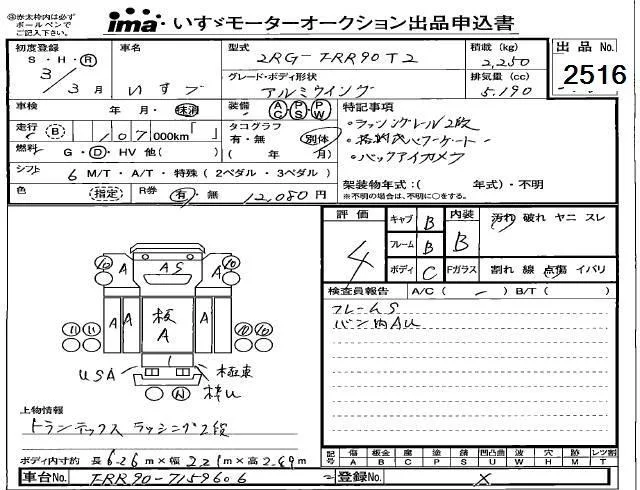 ㊟赤太枠内は必ず
ボールペンで
ご記入下さい。
ima いすゞモーターオークション出品申込書
初度登録 車名 型式 2RG-FRR90T2 積載 (kg) 2,250 出品 No. 2516
S・H・R 3/3月 いすゞ グレード・ボディ形状 アルミウイング 排気量 (cc) 5.190
車検 年 月・抹消 装備 AC PS PW 特記事項
・ラッシングレール2段
走行 (B) 107 000km「 」 タコグラフ 有・無 別体 (年 月)
・格納式パワーゲート
燃料 G・D・HV 他( )
・バックアイカメラ
シフト 6 M/T・A/T・特殊 (2ペダル・3ペダル)
色 (指定) R券 有・無 12,080円 架装物年式:( 年式)・不明
※不明の場合は、不明に○をする。
評価 4 キャブ B 内装 B 汚れ 破れ ヤニ スレ
フレーム B
ボディ C Fガラス 割れ 線 点傷 イバリ
検査員報告 A/C ( - ) B/T ( )
フレームS
バン内AU
10 A AS A 10
11 11 A 板A A 10 10
1
USA 極東
N 枠U
上物情報
トランテックス ラッシング2段
ボディ内寸約 長 6.26 m×幅 2.21 m×高 2.29 m
記号 傷 板金 腐 塗 錆 凹凸曲 波 穴 跡 レツ割
A B C P S U W H M T
車台No. FRR90-7159606 登録No. ×